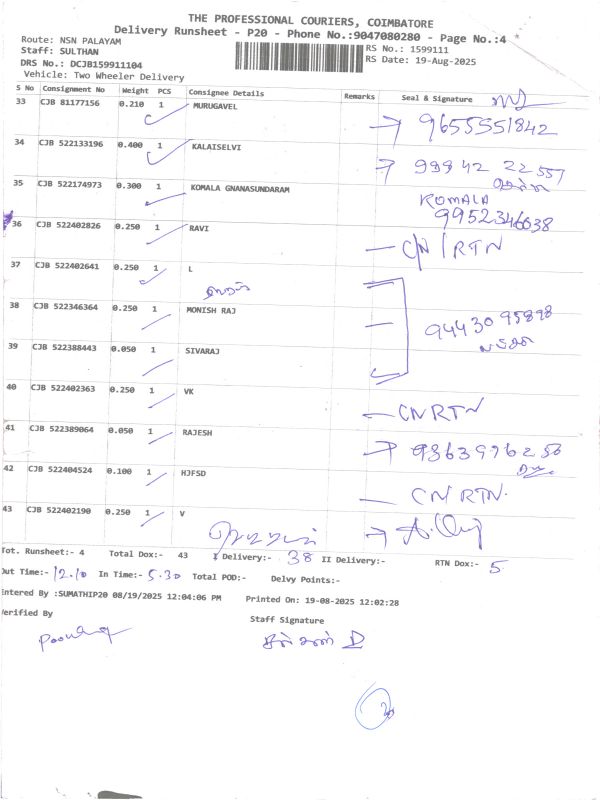 THE PROFESSIONAL COURIERS, COIMBATORE
Delivery Runsheet - P20 - Phone No.:9047080280 - Page No.:4 *
Route: NSN PALAYAM
RS No.: 1599111
Staff: SULTHAN
RS Date: 19-Aug-2025
DRS No.: DCJB159911104
Vehicle: Two Wheeler Delivery
S No Consignment No Weight PCS Consignee Details Remarks Seal & Signature
33 CJB 81177156 0.210 1 MURUGAVEL 9655551842
34 CJB 522133196 0.400 1 KALAISELVI 99942 22557
35 CJB 522174973 0.300 1 KOMALA GNANASUNDARAM KOMALA
9952346638
36 CJB 522402826 0.250 1 RAVI C/N/RTN
37 CJB 522402641 0.250 1 L
38 CJB 522346364 0.250 1 MONISH RAJ 94430 95898
39 CJB 522388443 0.050 1 SIVARAJ
40 CJB 522402363 0.250 1 VK CN RTN
41 CJB 522389064 0.050 1 RAJESH 9363976256
42 CJB 522404524 0.100 1 HJFSD CN/RTN.
43 CJB 522402190 0.250 1 V
Tot. Runsheet:- 4 Total Dox:- 43 I Delivery:- 38 II Delivery:- RTN Dox:- 5
Out Time:- 12.10 In Time:- 5.30 Total POD:- Delvy Points:-
Entered By :SUMATHIP20 08/19/2025 12:04:06 PM Printed On: 19-08-2025 12:02:28
Verified By
Staff Signature